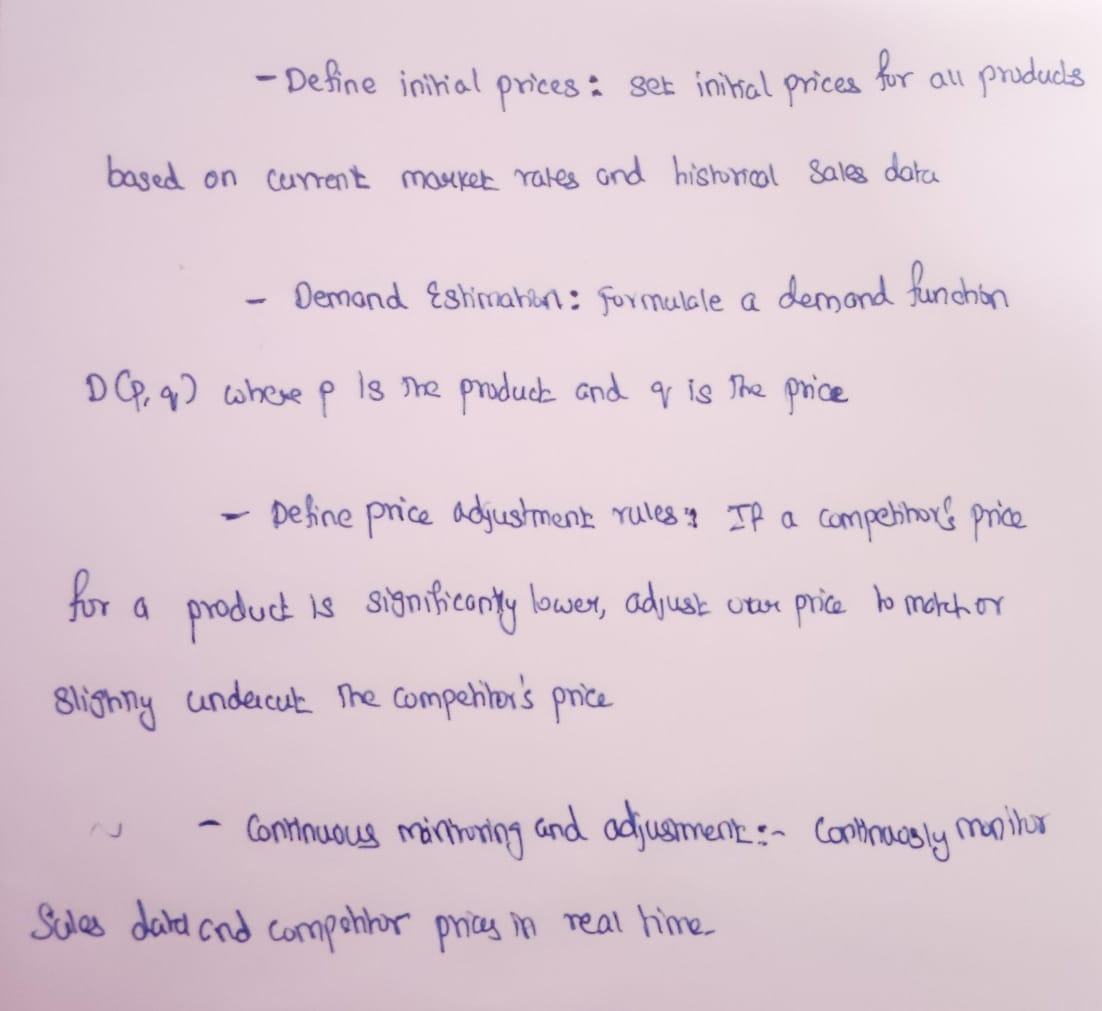 - Define initial prices: set initial prices for all products
based on current market rates and historical sales data
- Demand Estimation: Formulate a demand function
D(p, q) where p is the product and q is the price
- Define price adjustment rules: If a competitor's price
for a product is significantly lower, adjust your price to match or
slightly undercut the competitor's price
- Continuous monitoring and adjustment:- Continuously monitor
Sales data and competitor prices in real time.